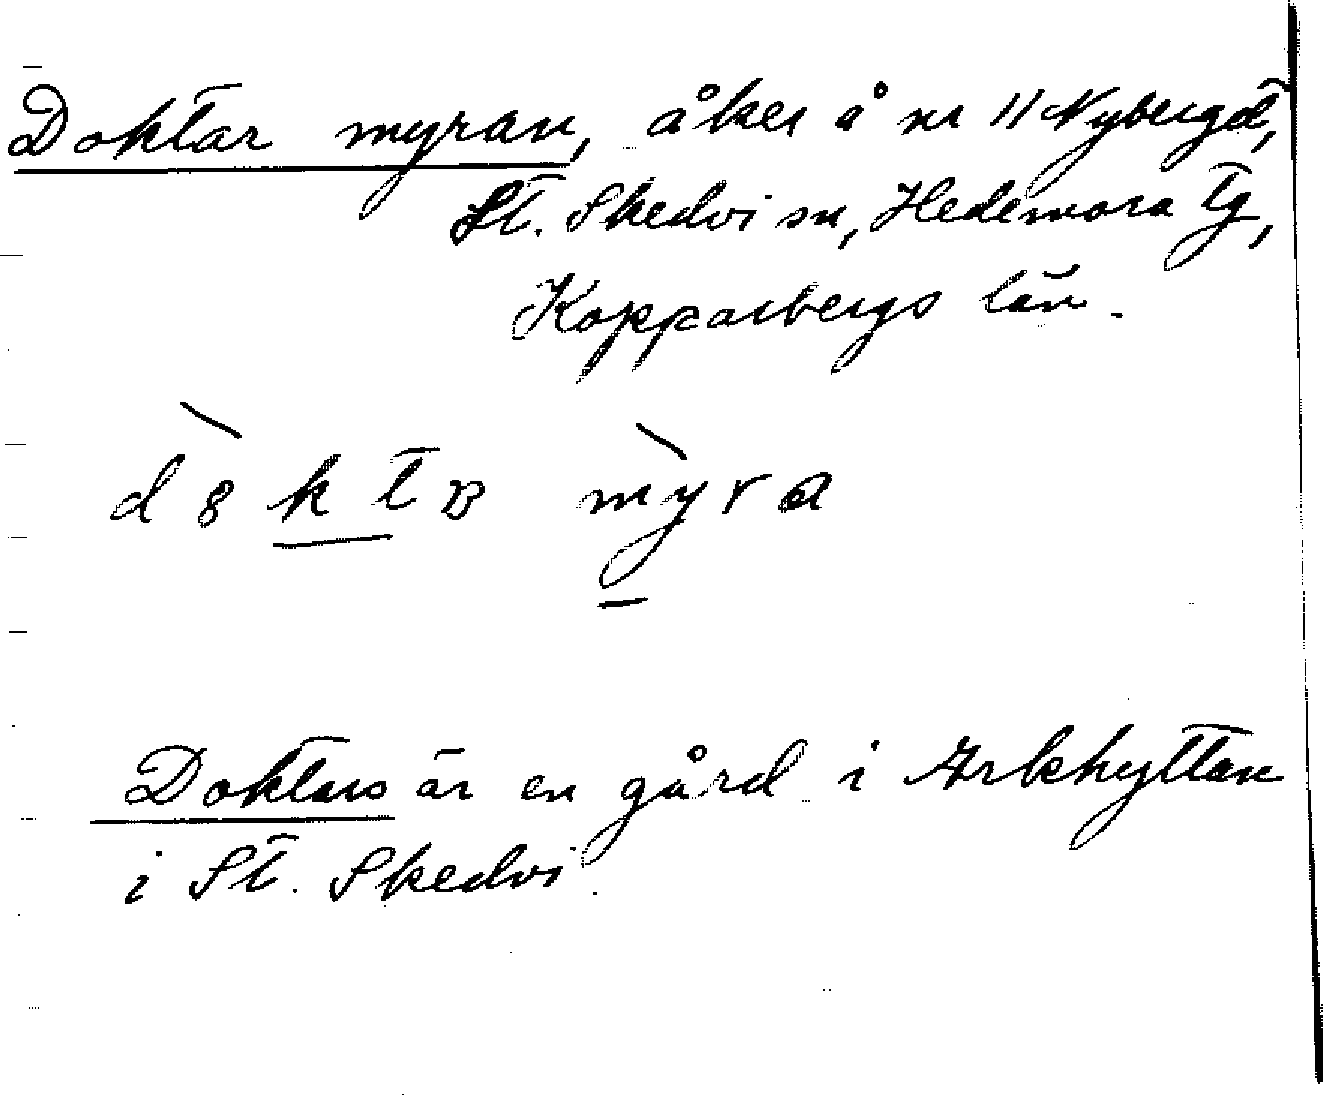 Doktar myran, åker å nr 11 Nyberget,
St. Skedvi sn, Hedemora tg,
Kopparbergs län.
d8ktɐ myra
Doktars är en gård i Arkhyttan
i St. Skedvi.